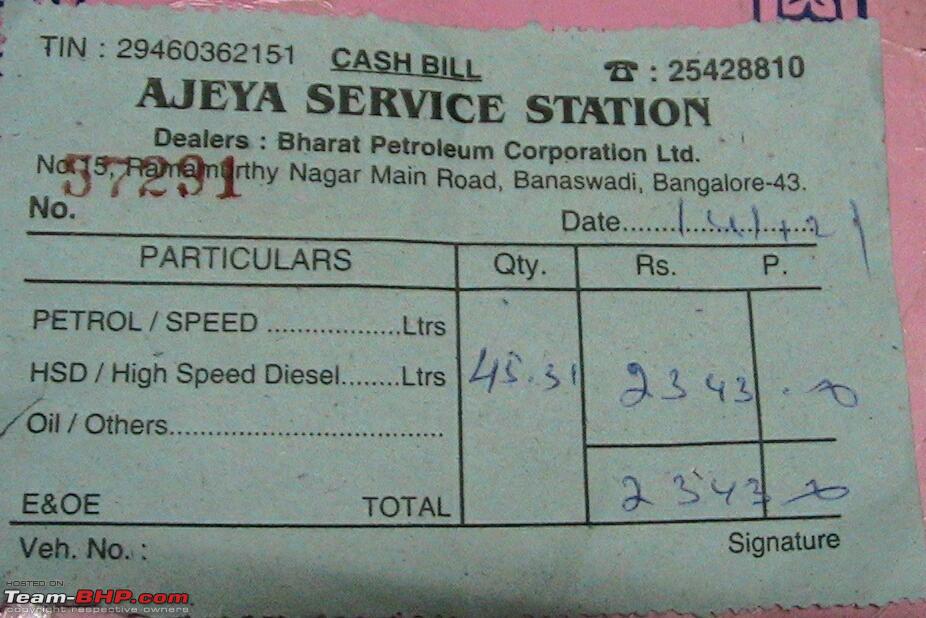 TIN : 29460362151 CASH BILL ☎ : 25428810
AJEYA SERVICE STATION
Dealers : Bharat Petroleum Corporation Ltd.
No.15, Ramamurthy Nagar Main Road, Banaswadi, Bangalore-43.
57291
No. Date..........................
PARTICULARS Qty. Rs. P.
PETROL / SPEED ..................Ltrs
HSD / High Speed Diesel........Ltrs 45.31 2343
Oil / Others.....................................
E&OE TOTAL 2343
Veh. No. : Signature
HOSTED ON
Team-BHP.com
copyright respective owners